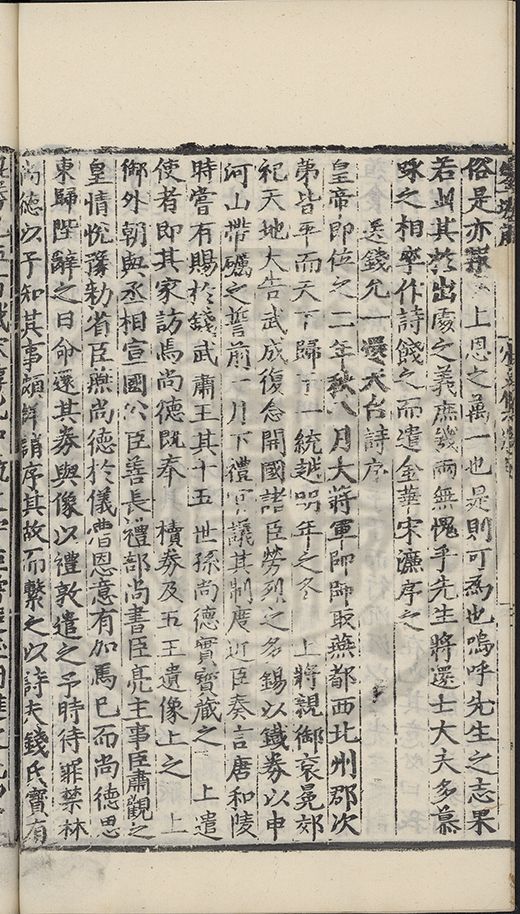 俗是亦報上恩之萬一也是則可為也嗚呼先生之志果
若此其於出處之義庶幾兩無愧乎先生將還士大夫多慕
咏之相率作詩餞之而遣金華宋濂序之
送錢允一還天台詩序
皇帝即位之二年秋八月大將軍帥師取燕都西北州郡次
第皆平而天下歸于一統越明年之冬 上將親御袞冕郊
祀天地大告武成復念開國諸臣勞烈之多錫以鐵券以申
河山帶礪之誓前一月下禮官議其制度近臣奏言唐和陵
時嘗有賜於錢武肅王其十五世孫尚德實寶藏之 上遣
使者即其家訪焉尚德既奉 櫝券及五王遺像上之 上
御外朝與丞相宣國公臣善長禮部尚書臣亮主事臣肅觀之
皇情悅豫勑省臣燕尚德於儀曹恩意有加焉已而尚德思
東歸陛辭之日命還其券與像以禮敦遣之予時待罪禁林
尚德以予知其事頗詳請序其故而繫之以詩夫錢氏寶有